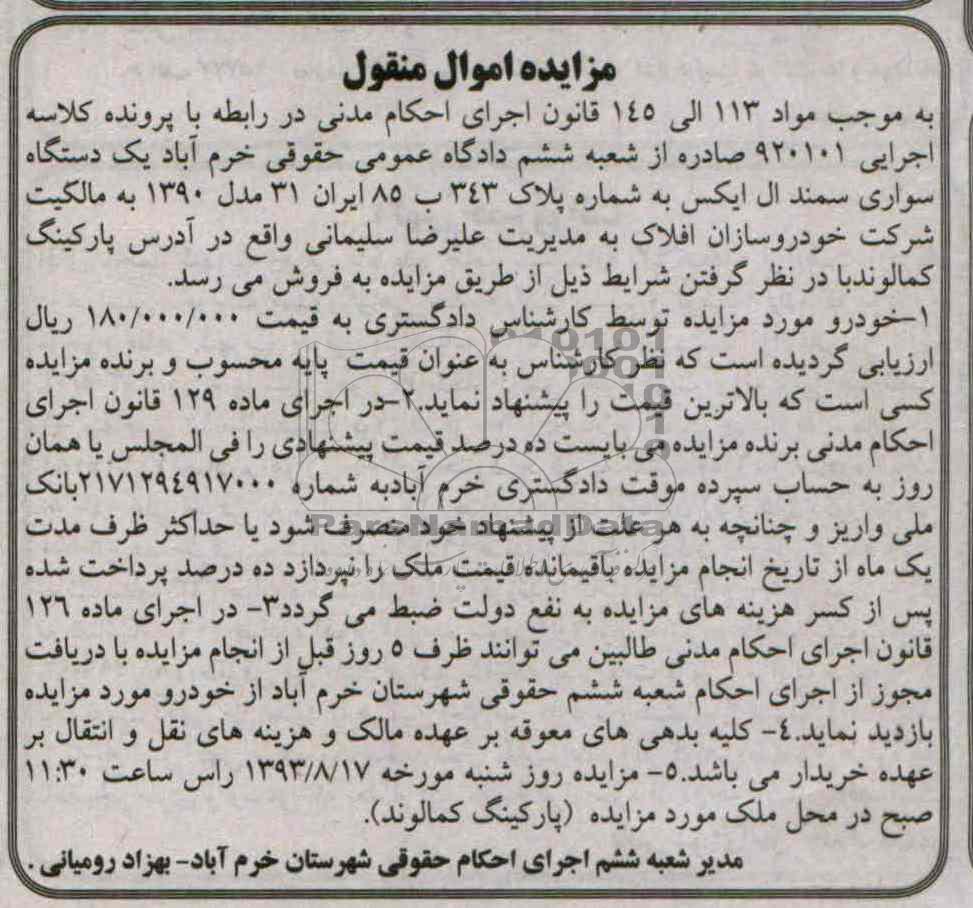 مزایده اموال منقول
به موجب مواد ۱۱۳ الی ۱٤٥ قانون اجرای احکام مدنی در رابطه با پرونده کلاسه
اجرایی ۹۲۰۱۰۱ صادره از شعبه ششم دادگاه عمومی حقوقی خرم آباد یک دستگاه
سواری سمند ال ایکس به شماره پلاک ۳٤۳ ب ۸٥ ایران ۳۱ مدل ۱۳۹۰ به مالکیت
شرکت خودروسازان افلاک به مدیریت علیرضا سلیمانی واقع در آدرس پارکینگ
کمالوندبا در نظر گرفتن شرایط ذیل از طریق مزایده به فروش می رسد.
۱-خودرو مورد مزایده توسط کارشناس دادگستری به قیمت ۱۸۰/۰۰۰/۰۰۰ ریال
ارزیابی گردیده است که نظر کارشناس به عنوان قیمت پایه محسوب و برنده مزایده
کسی است که بالاترین قیمت را پیشنهاد نماید.۲-در اجرای ماده ۱۲۹ قانون اجرای
احکام مدنی برنده مزایده می بایست ده درصد قیمت پیشنهادی را فی المجلس یا همان
روز به حساب سپرده موقت دادگستری خرم آبادبه شماره ۲۱۷۱۲۹٤۹۱۷۰۰۰بانک
ملی واریز و چنانچه به هر علت از پیشنهاد خود منصرف شود یا حداکثر ظرف مدت
یک ماه از تاریخ انجام مزایده باقیمانده قیمت ملک را نپردازد ده درصد پرداخت شده
پس از کسر هزینه های مزایده به نفع دولت ضبط می گردد۳- در اجرای ماده ۱۲٦
قانون اجرای احکام مدنی طالبین می توانند ظرف ٥ روز قبل از انجام مزایده با دریافت
مجوز از اجرای احکام شعبه ششم حقوقی شهرستان خرم آباد از خودرو مورد مزایده
بازدید نماید.٤- کلیه بدهی های معوقه بر عهده مالک و هزینه های نقل و انتقال بر
عهده خریدار می باشد.٥- مزایده روز شنبه مورخه ۱۳۹۳/۸/۱۷ راس ساعت ۱۱:۳۰
صبح در محل ملک مورد مزایده (پارکینگ کمالوند).
مدیر شعبه ششم اجرای احکام حقوقی شهرستان خرم آباد- بهزاد رومیانی .
ParsNamadData